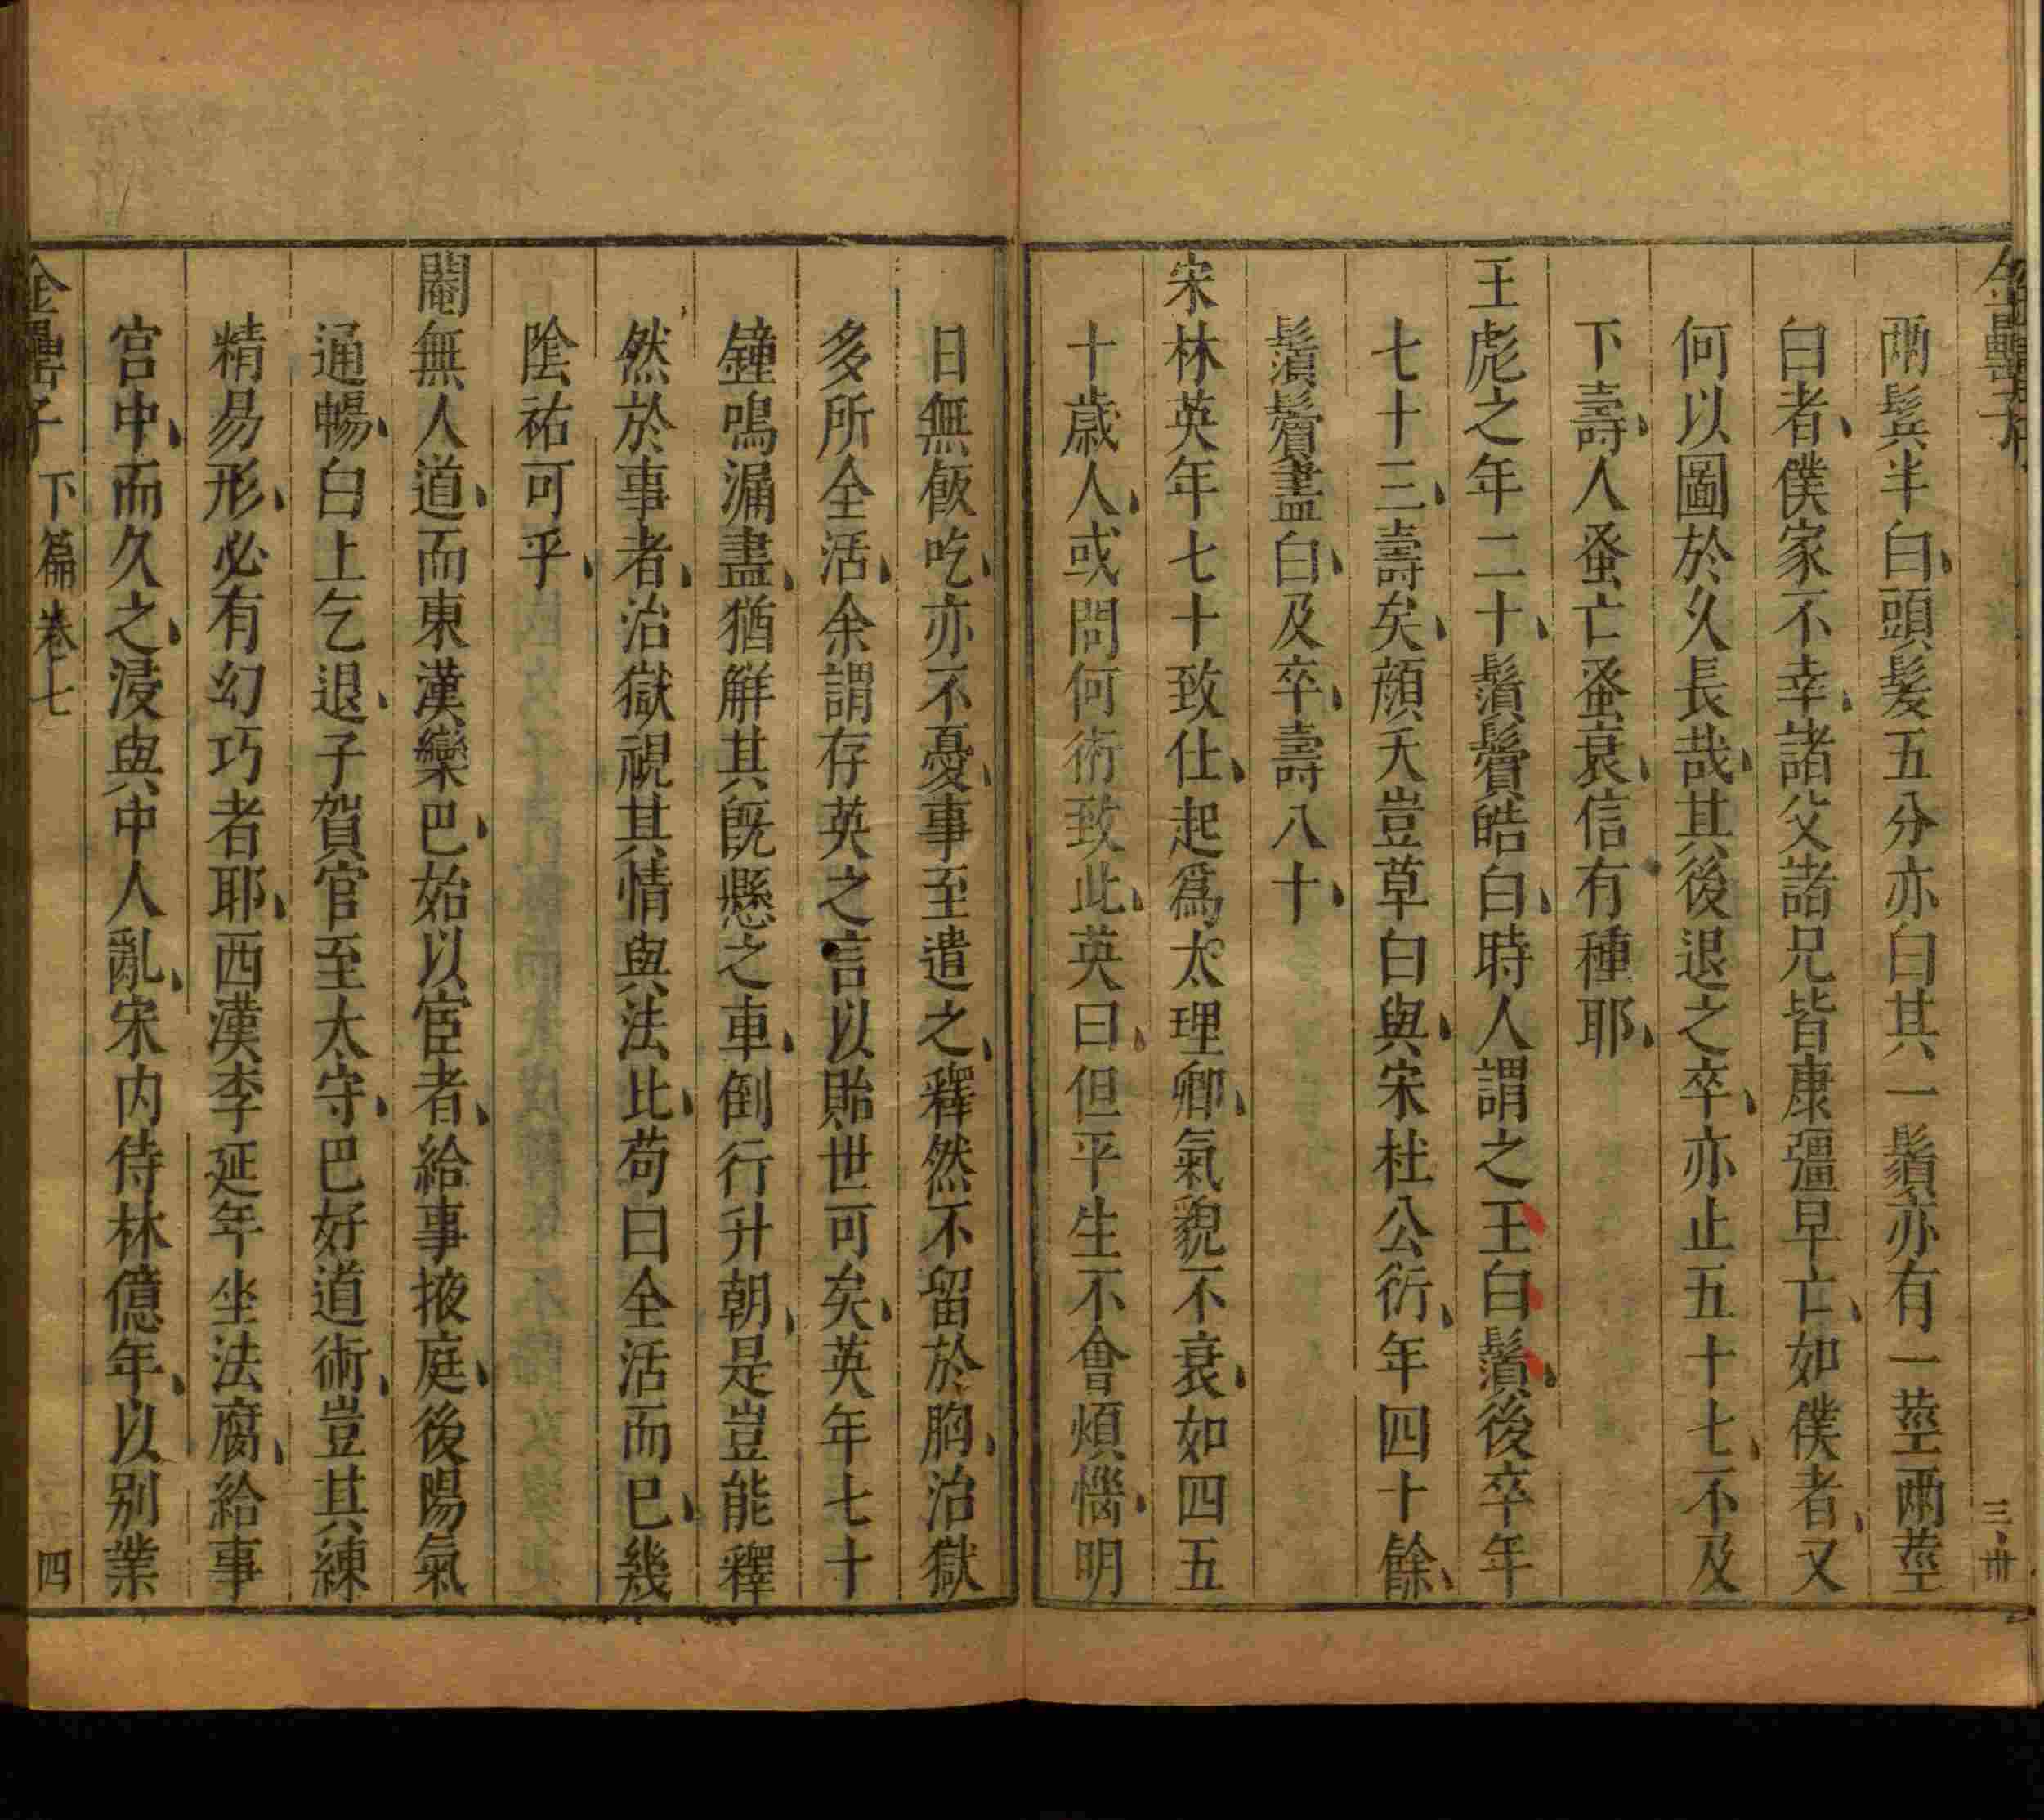 金罍子
三
卅
兩鬂半白頭髮五分亦白其一鬚亦有一莖兩莖
白者僕家不幸諸父諸兄皆康彊早亡如僕者又
何以圖於久長哉其後退之卒亦止五十七不及
下壽人蚤亡蚤衰信有種耶
王彪之年二十鬚鬢皓白時人謂之王白鬚後卒年
七十三壽矣顔夭豈草白與宋杜公衍年四十餘
鬚鬢盡白及卒壽八十
宋林英年七十致仕起爲太理卿氣貌不衰如四五
十歳人或問何術致此英曰但平生不會煩惱明
日無飯吃亦不憂事至遣之釋然不留於胸治獄
多所全活余謂存英之言以貽世可矣英年七十
鐘鳴漏盡猶觧其旣懸之車倒行升朝是豈能釋
然於事者治獄視其情與法比苟曰全活而巳幾
陰祐可乎
閹無人道而東漢欒巴始以宦者給事掖庭後陽氣
通暢白上乞退子賀官至太守巴好道術豈其練
精易形必有幻巧者耶西漢李延年坐法腐給事
宫中而久之浸與中人亂宋内侍林億年以别業
金罍子
下篇卷七
四